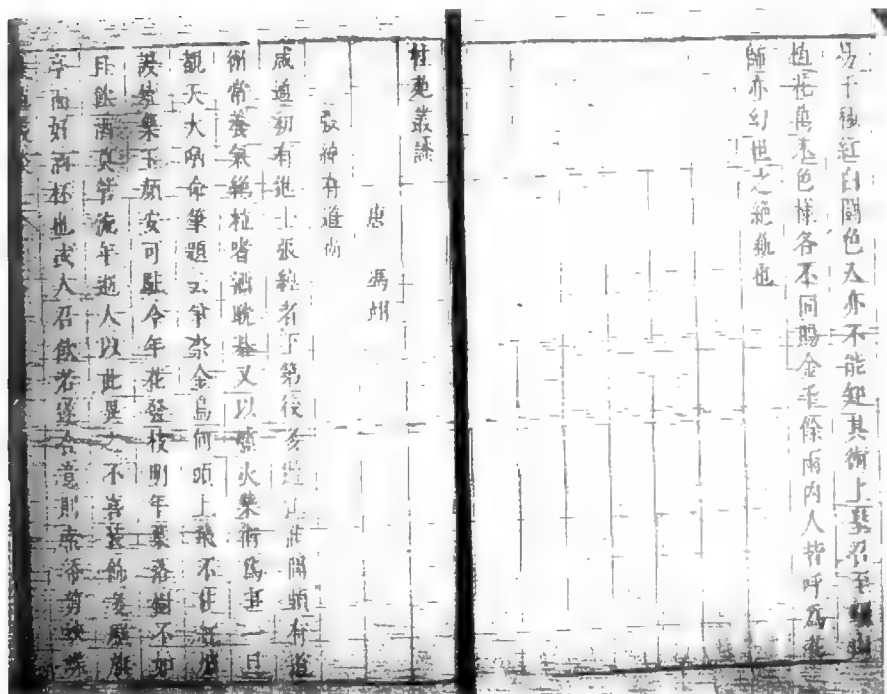 易千種紅白鬪色人亦不能知其術上皇召至驪山
植花萬本色樣各不同賜金千餘兩內人皆呼爲花
師亦幻世之絕藝也
桂苑叢譚
唐 馮翊
張綽有道術
咸通初有進士張綽者下第後多遊江淮間頗有道
術常養氣絕粒嗜酒耽棊又以爐火藥術爲事一旦
覩天大哂命筆題云爭奈金烏何頭上飛不住紅爐
謾燒藥玉顏安可駐今年花發枝明年葉落樹不如
且飲酒莫管流年逝人以此異之不喜裝飾多歷旗
亭而好酒杯也或人召飲若遂合意則索紙剪蛺蝶